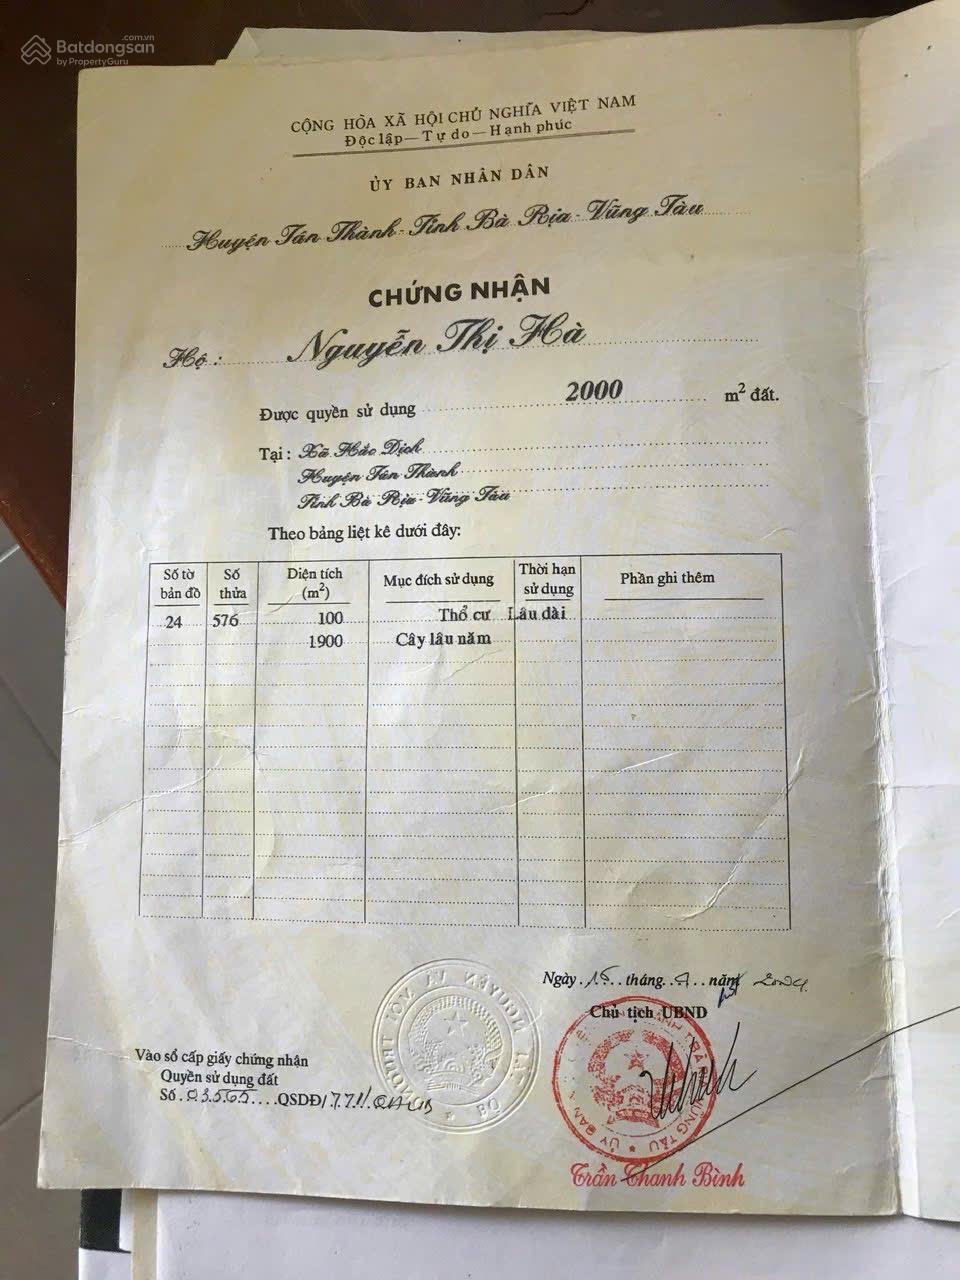 .com.vn
Batdongsan
by PropertyGuru
CỘNG HÒA XÃ HỘI CHỦ NGHĨA VIỆT NAM
Độc lập — Tự do — Hạnh phúc
ỦY BAN NHÂN DÂN
Huyện Tân Thành - Tỉnh Bà Rịa - Vũng Tàu
CHỨNG NHẬN
Hộ : Nguyễn Thị Hà
Được quyền sử dụng 2000 m² đất.
Tại : Xã Hắc Dịch
Huyện Tân Thành
Tỉnh Bà Rịa - Vũng Tàu
Theo bảng liệt kê dưới đây:
Số tờ bản đồ Số thửa Diện tích (m²) Mục đích sử dụng Thời hạn sử dụng Phần ghi thêm
24 576 100 Thổ cư Lâu dài
1900 Cây lâu năm
Ngày 15 tháng năm 2004
Chủ tịch UBND
BỘ TÀI NGUYÊN VÀ MÔI TRƯỜNG
Vào sổ cấp giấy chứng nhận
Quyền sử dụng đất
Số 03565 QSDĐ/
Trần Thanh Bình